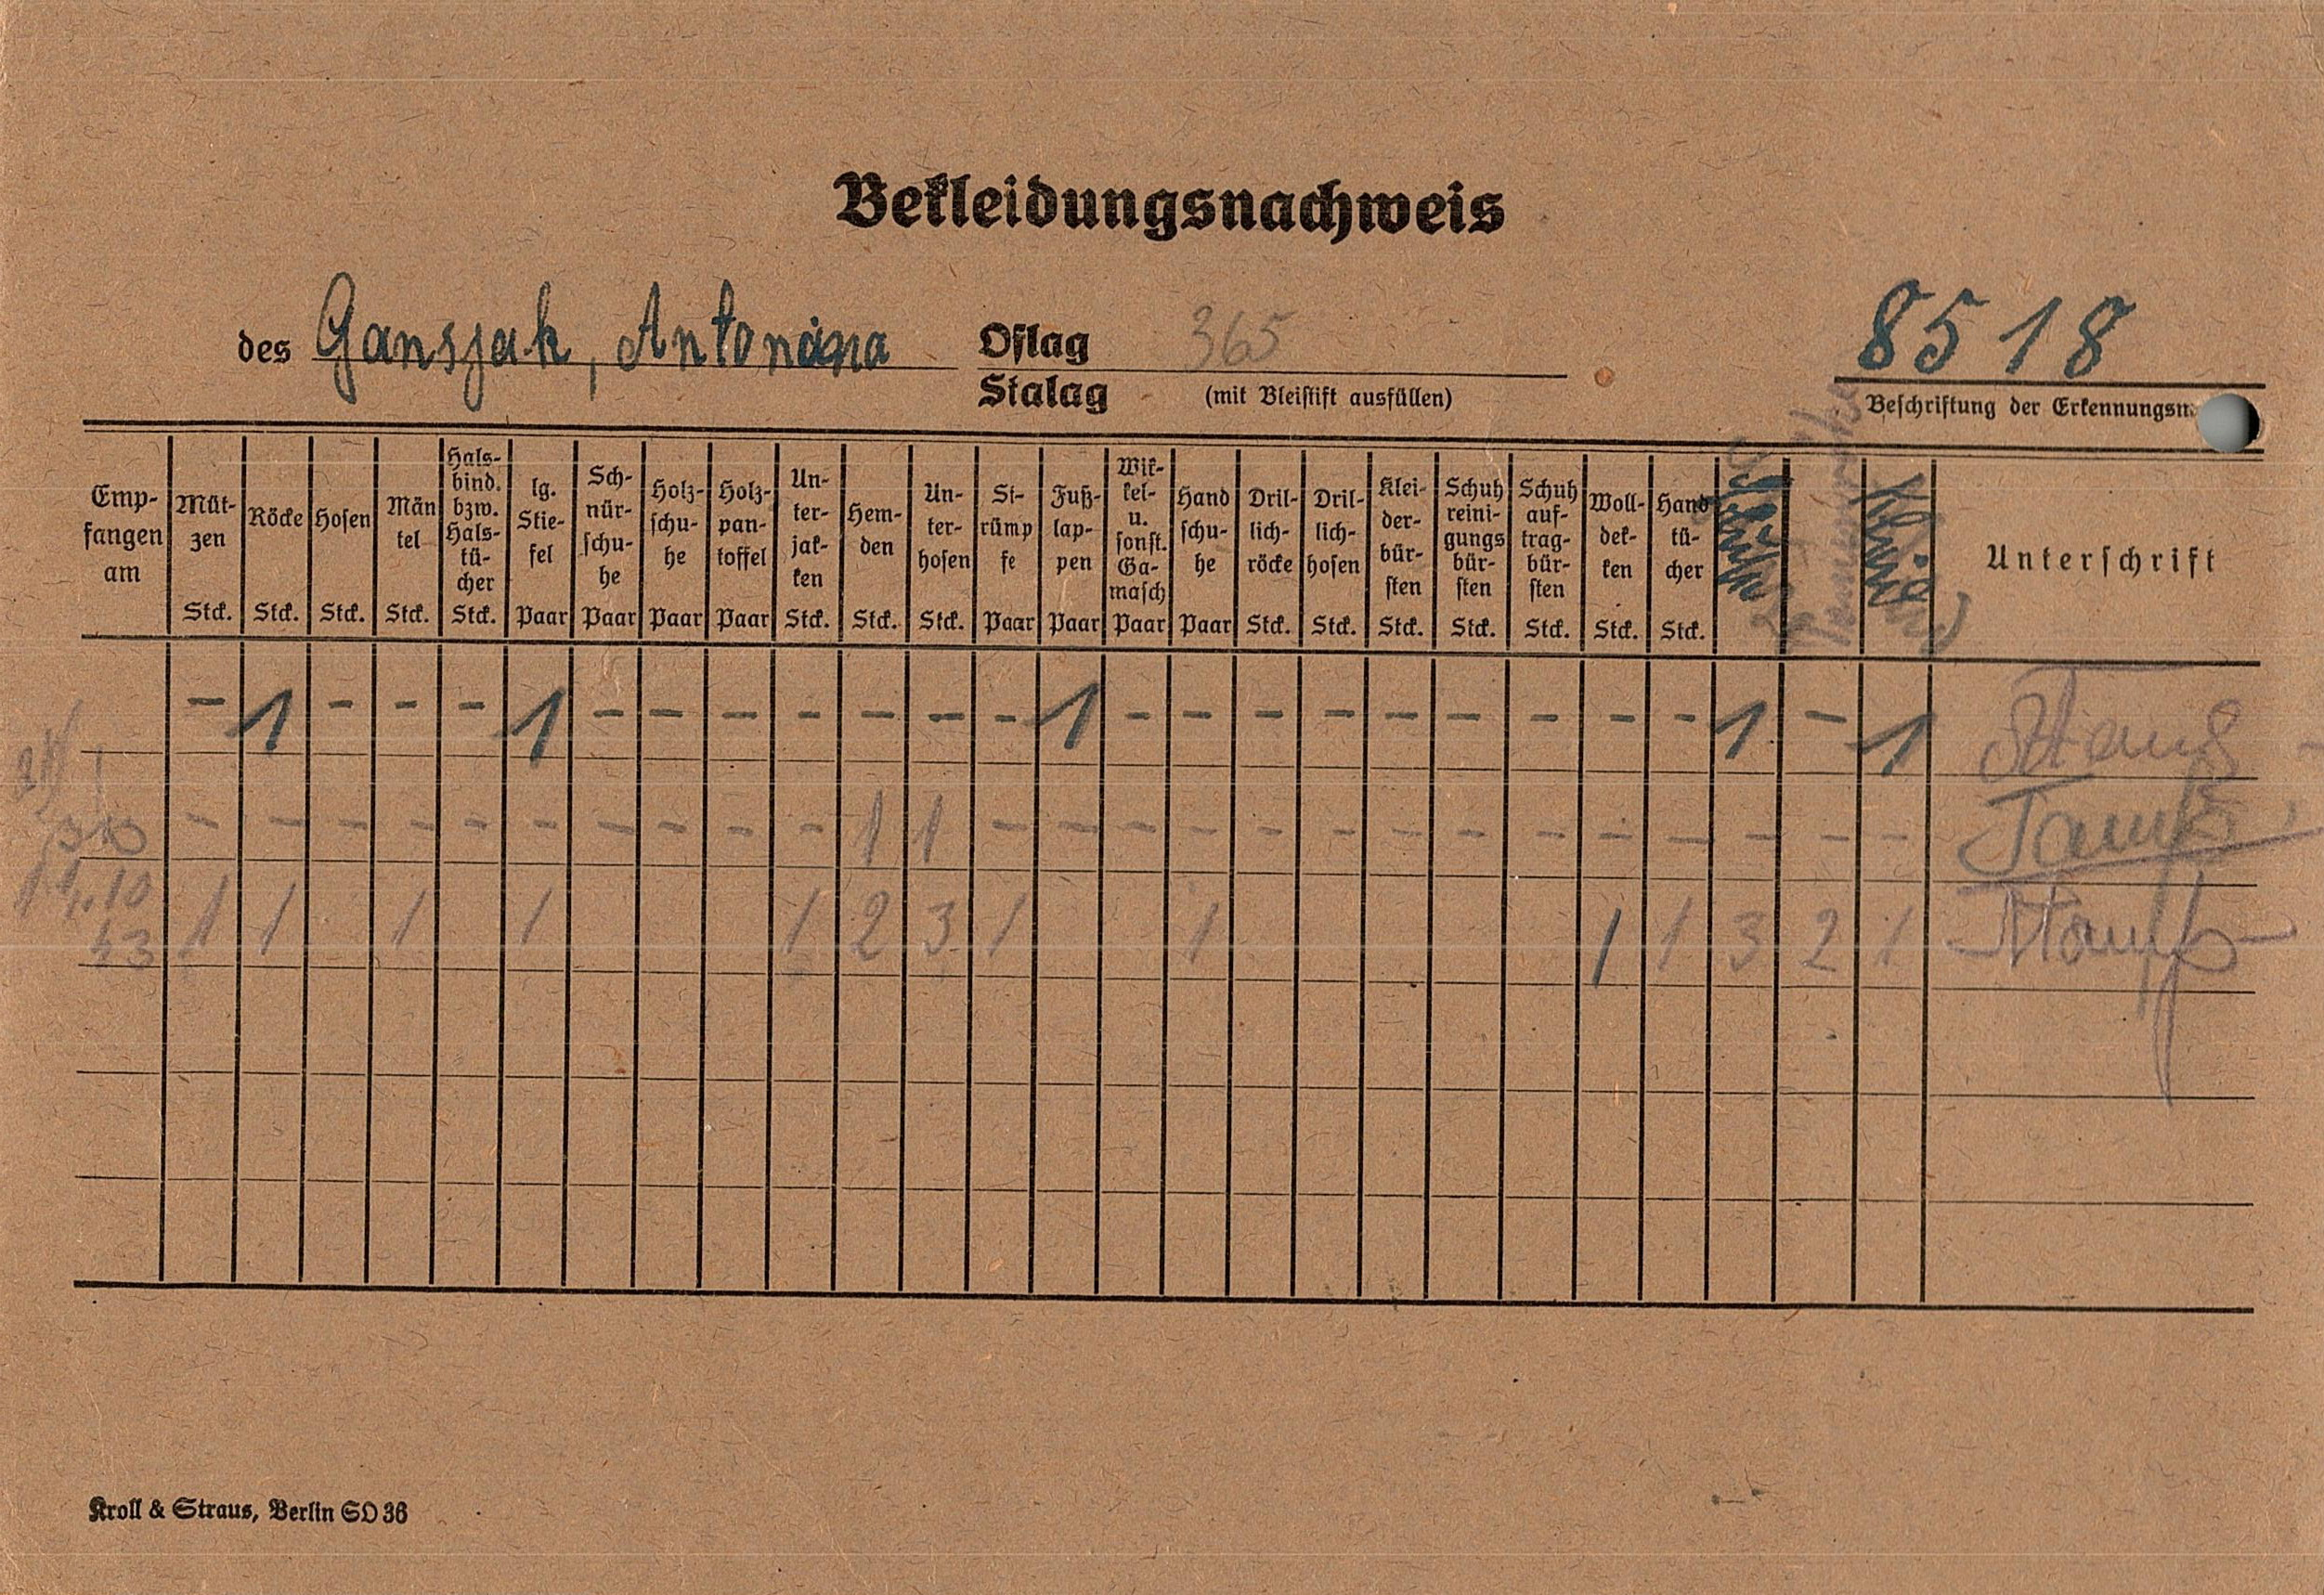 Bekleidungsnachweis
des Gansjak, Antonina Oflag 365 8518
Stalag (mit Bleistift ausfüllen) Beschriftung der Erkennungsm
Emp-fangen am
Müt-zen Stck.
Röcke Stck.
Hosen Stck.
Män tel Stck.
Hals-bind. bzw. Hals-tü-cher Stck.
lg. Stie-fel Paar
Sch-nür-schu-he Paar
Holz-schu-he Paar
Holz-pan-toffel Paar
Un-ter-jak-ken Stck.
Hem-den Stck.
Un-ter-hosen Stck.
St-rümp fe Paar
Fuß-lap-pen Paar
Wik-kel-u. sonst. Ga-masch Paar
Hand schu-he Paar
Dril-lich-röcke Stck.
Dril-lich-hosen Stck.
Klei-der-bür-sten Stck.
Schuh reini-gungs bür-sten Stck.
Schuh auf-trag-bür-sten Stck.
Woll-dek-ken Stck.
Hand tü-cher Stck.
Unterschrift
- 1 - - - 1 - - - - - - - 1 - - - - - - - - - 1 - 1
- - - - - - - - - - 1 1 - - - - - - - - - - - - - -
10 43 1 1 1 1 1 2 3 1 1 1 1 3 2 1
Kroll & Straus, Berlin SO 36